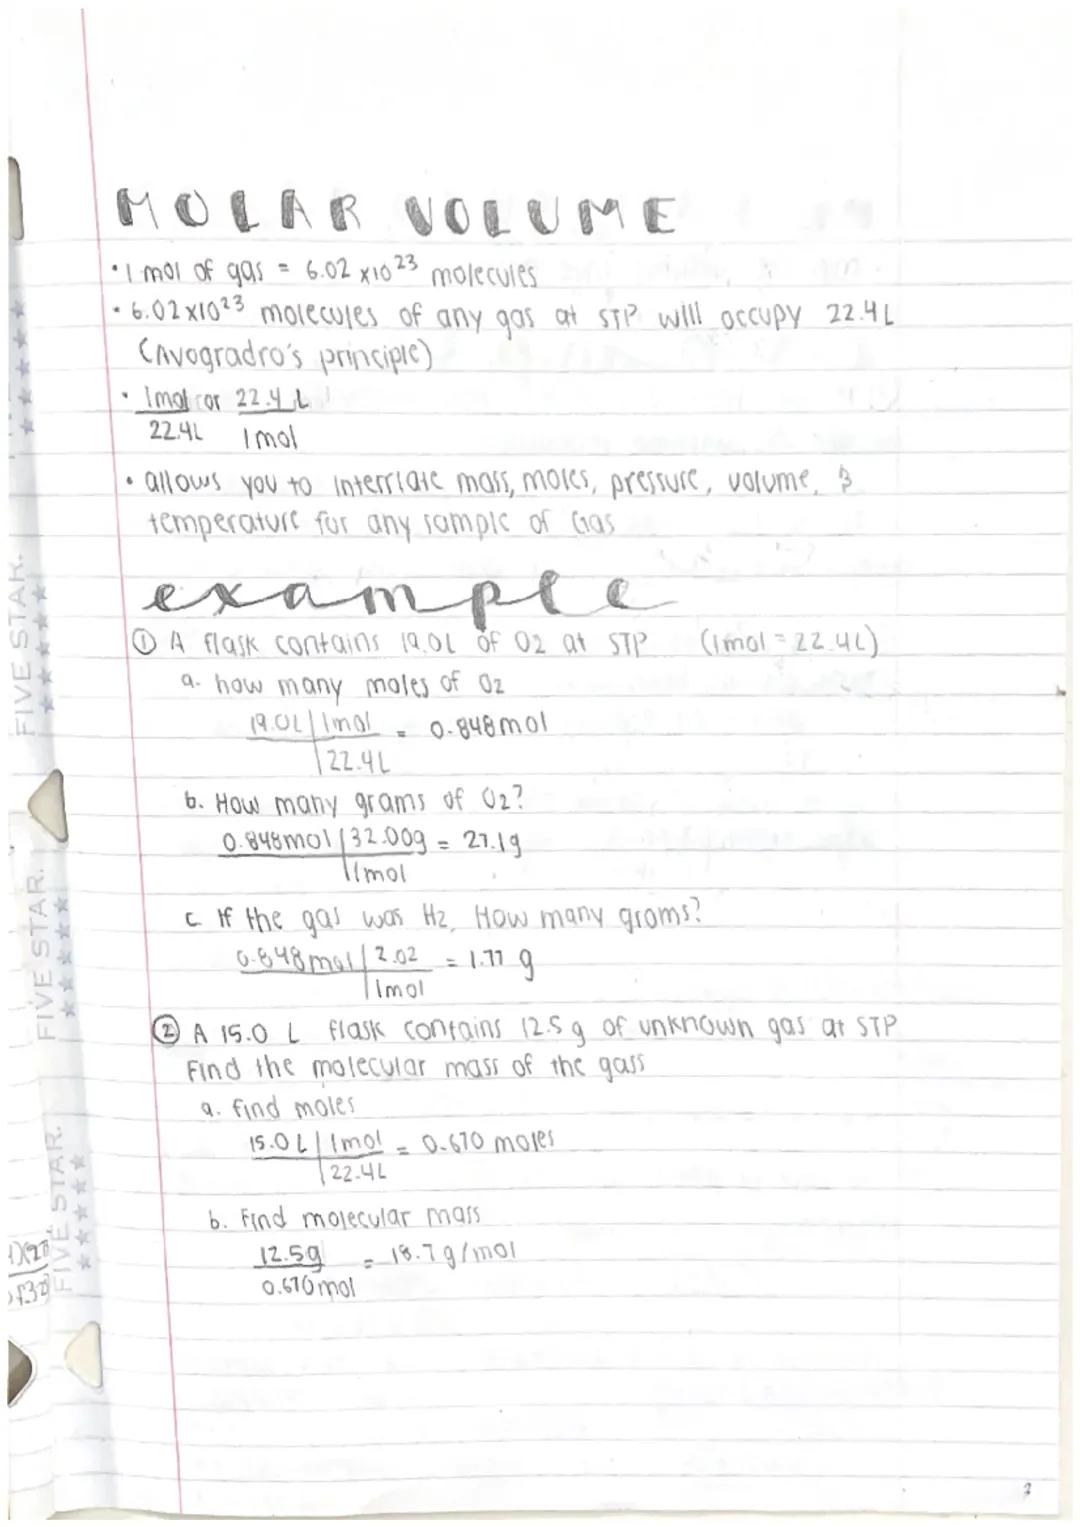 MOLAR VOLUME
• 1 mol of gas = 6.02 x10²³ molecules
• 6.02x10²³ molecules of any gas at STP will occupy 22.4L
(Avogradro's principle)
• 1mol or 22.4 L
22.4L 1mol
• allows you to interrlate mass, moles, pressure, volume, &
temperature for any sample of Gas
example
① A flask contains 19.0L of O2 at STP (1mol = 22.4L)
a. how many moles of O2
19.0L | 1mol = 0.848mol
22.4L
b. How many grams of O2?
0.848mol | 32.00g = 27.1g
1mol
c If the gas was H2, How many grams?
0.848mol | 2.02 = 1.77 g
1mol
② A 15.0 L flask contains 12.5 g of unknown gas at STP
Find the molecular mass of the gass
a. find moles
15.0L | 1mol = 0.670 moles
22.4L
b. Find molecular mass
12.5g = 18.7g/mol
0.670mol
FIVE STAR.
FIVE STAR.
FIVE STAR.